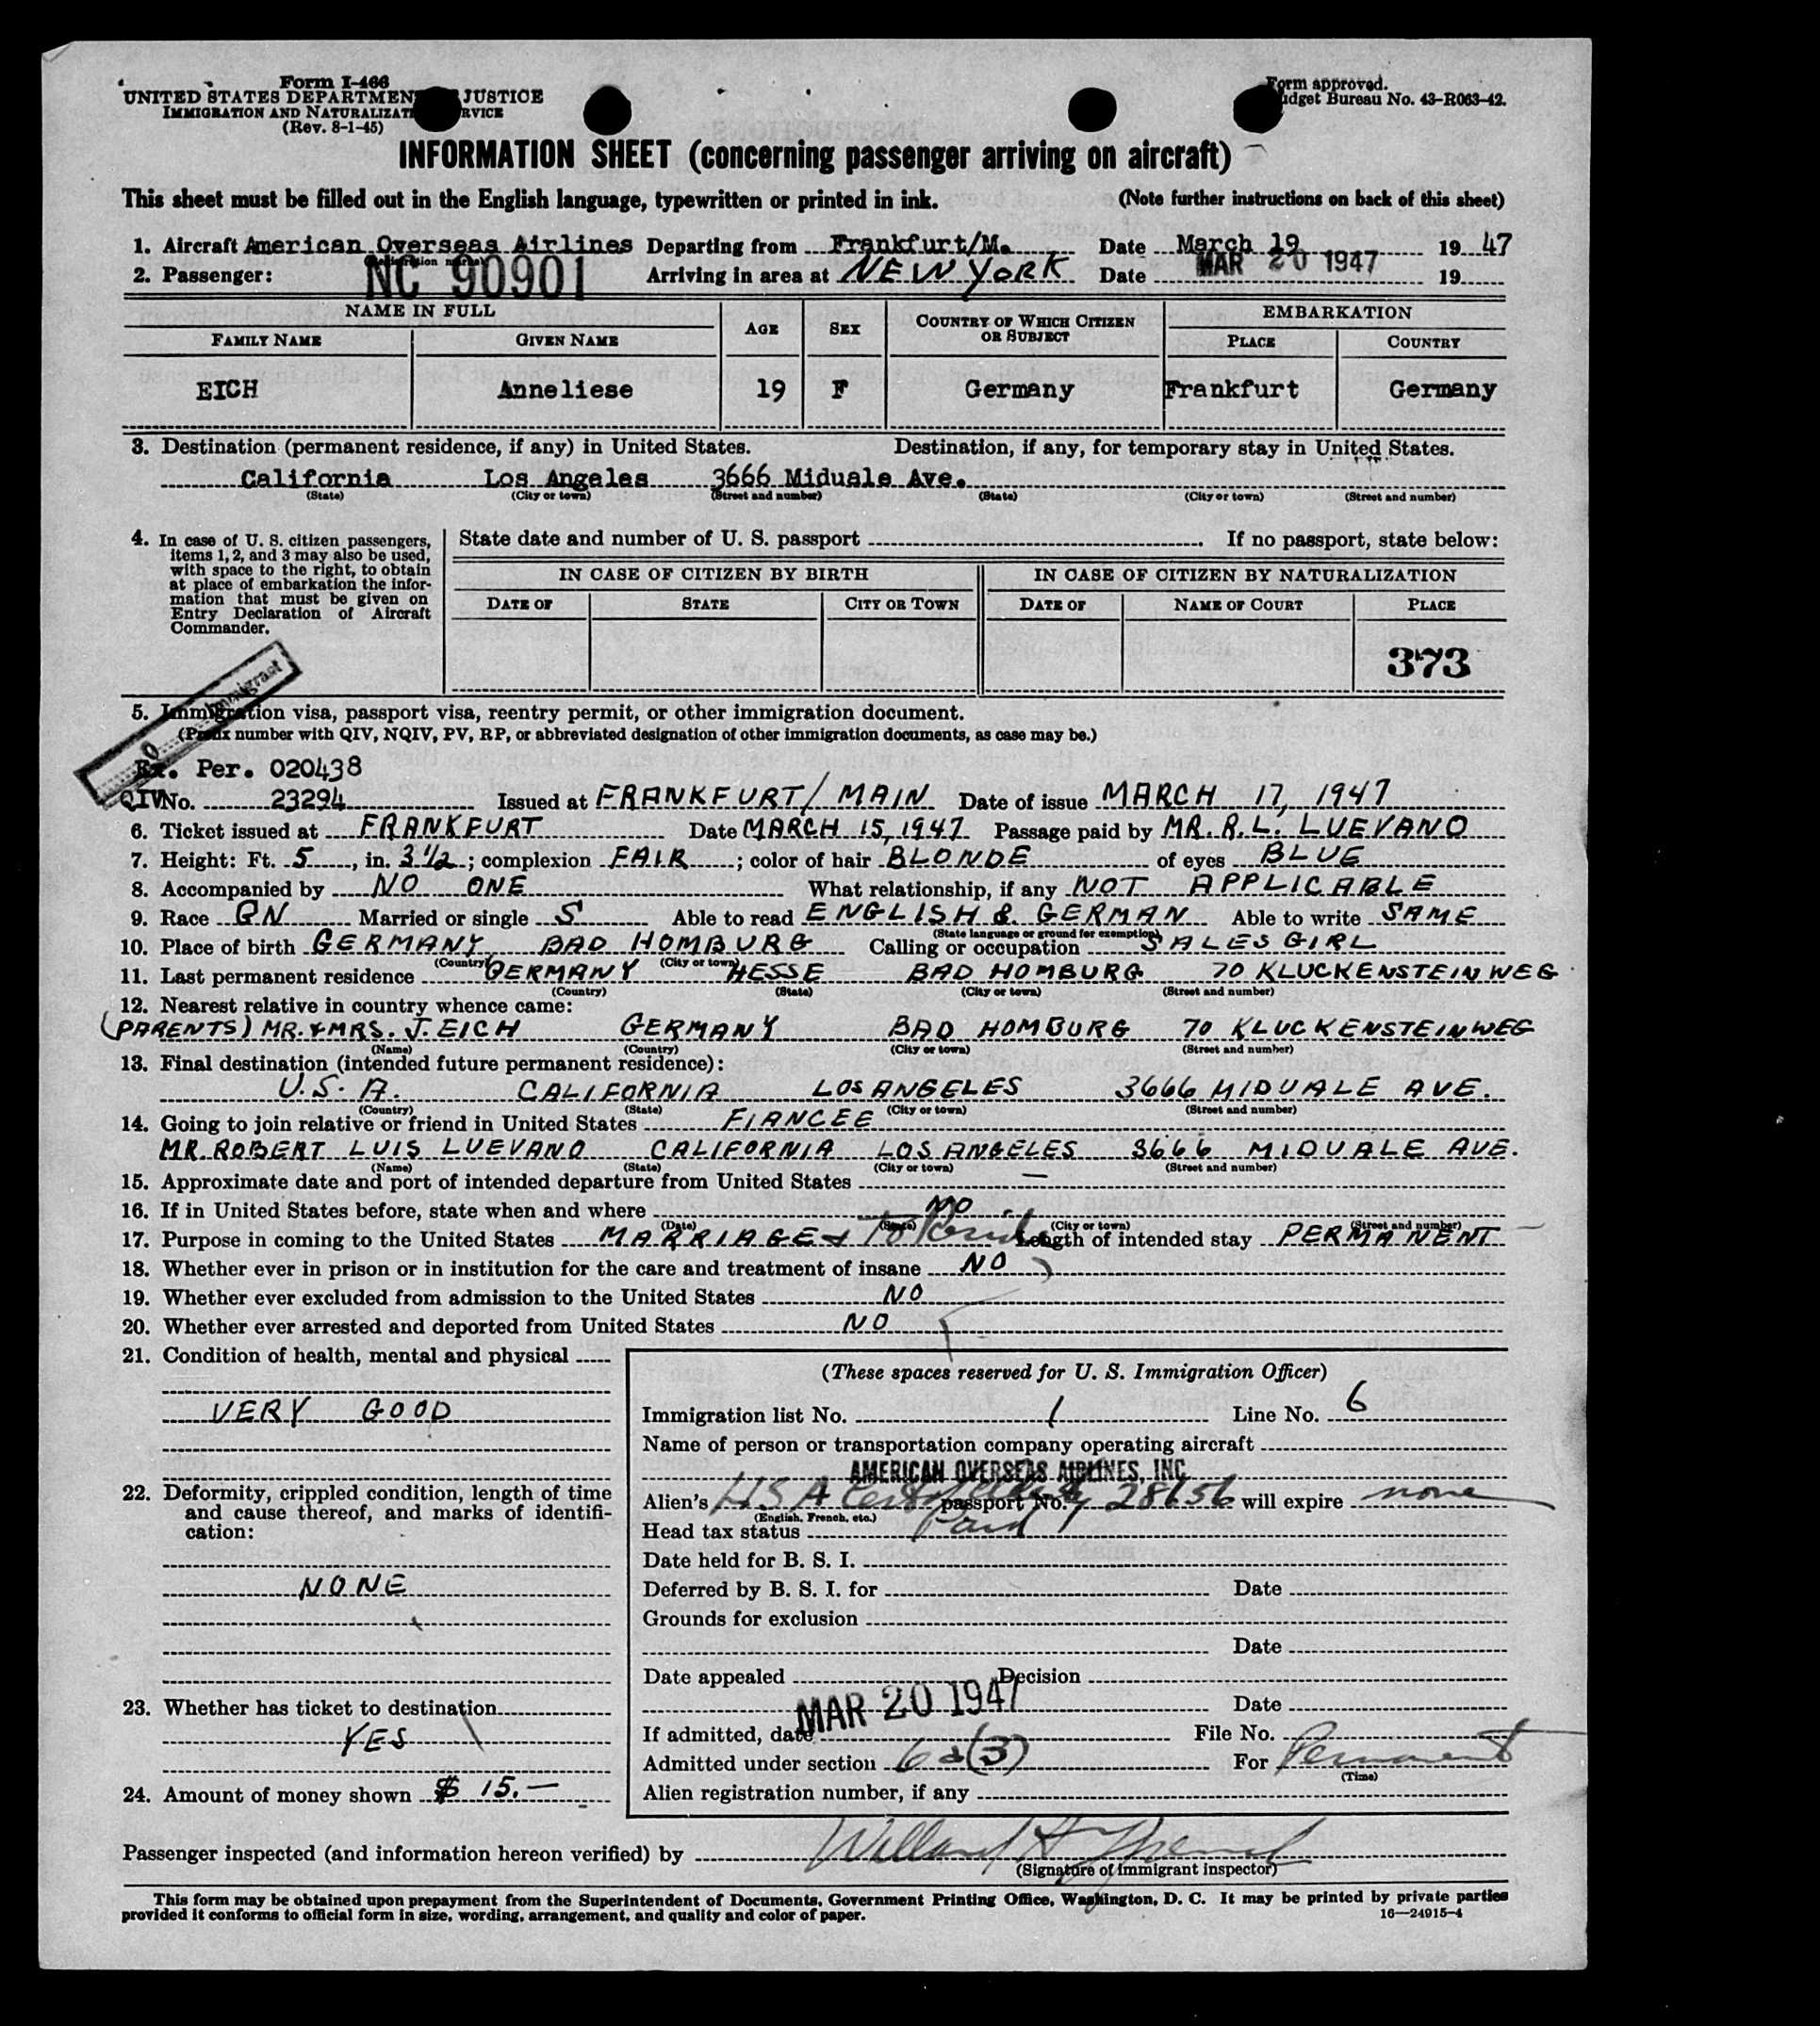 Form I-466
UNITED STATES DEPARTMENT JUSTICE
IMMIGRATION AND NATURALIZAT RVICE
(Rev. 8-1-45)
Form approved.
udget Bureau No. 43-R063-42.
INFORMATION SHEET (concerning passenger arriving on aircraft)
This sheet must be filled out in the English language, typewritten or printed in ink. (Note further instructions on back of this sheet)
1. Aircraft American Overseas Airlines Departing from Frankfurt/M. Date March 19 19 47
2. Passenger: NC 90901 Arriving in area at NEW YORK Date MAR 20 1947 19
NAME IN FULL AGE SEX COUNTRY OF WHICH CITIZEN OR SUBJECT EMBARKATION
FAMILY NAME GIVEN NAME PLACE COUNTRY
EICH Anneliese 19 F Germany Frankfurt Germany
3. Destination (permanent residence, if any) in United States. Destination, if any, for temporary stay in United States.
California Los Angeles 3666 Miduale Ave.
(State) (City or town) (Street and number) (State) (City or town) (Street and number)
4. In case of U. S. citizen passengers,
items 1, 2, and 3 may also be used,
with space to the right, to obtain
at place of embarkation the infor-
mation that must be given on
Entry Declaration of Aircraft
Commander.
State date and number of U. S. passport If no passport, state below:
IN CASE OF CITIZEN BY BIRTH IN CASE OF CITIZEN BY NATURALIZATION
DATE OF STATE CITY OR TOWN DATE OF NAME OF COURT PLACE
373
Immigrant
5. Immigration visa, passport visa, reentry permit, or other immigration document.
(Prefix number with QIV, NQIV, PV, RP, or abbreviated designation of other immigration documents, as case may be.)
Ex. Per. 020438
QIV No. 23294 Issued at FRANKFURT/MAIN Date of issue MARCH 17, 1947
6. Ticket issued at FRANKFURT Date MARCH 15, 1947 Passage paid by MR. R. L. LUEVANO
7. Height: Ft. 5, in. 3 1/2; complexion FAIR; color of hair BLONDE of eyes BLUE
8. Accompanied by NO ONE What relationship, if any NOT APPLICABLE
9. Race GN Married or single S Able to read ENGLISH & GERMAN Able to write SAME
(State language or ground for exemption)
10. Place of birth GERMANY BAD HOMBURG Calling or occupation SALESGIRL
(Country) (City or town)
11. Last permanent residence GERMANY HESSE BAD HOMBURG 70 KLUCKENSTEINWEG
(Country) (State) (City or town) (Street and number)
12. Nearest relative in country whence came:
(PARENTS) MR. & MRS. J. EICH GERMANY BAD HOMBURG 70 KLUCKENSTEINWEG
(Name) (Country) (City or town) (Street and number)
13. Final destination (intended future permanent residence):
U.S.A. CALIFORNIA LOS ANGELES 3666 MIDUALE AVE.
(Country) (State) (City or town) (Street and number)
14. Going to join relative or friend in United States FIANCEE
MR. ROBERT LUIS LUEVANO CALIFORNIA LOS ANGELES 3666 MIDUALE AVE.
(Name) (State) (City or town) (Street and number)
15. Approximate date and port of intended departure from United States —
16. If in United States before, state when and where NO
(Date) (State) (City or town) (Street and number)
17. Purpose in coming to the United States MARRIAGE & To Reside Length of intended stay PERMANENT
18. Whether ever in prison or in institution for the care and treatment of insane NO
19. Whether ever excluded from admission to the United States NO
20. Whether ever arrested and deported from United States NO
21. Condition of health, mental and physical
VERY GOOD
22. Deformity, crippled condition, length of time
and cause thereof, and marks of identifi-
cation:
NONE
23. Whether has ticket to destination
YES
24. Amount of money shown $ 15.—
(These spaces reserved for U. S. Immigration Officer)
Immigration list No. 1 Line No. 6
Name of person or transportation company operating aircraft
AMERICAN OVERSEAS AIRLINES, INC
Alien's passport No. 28656 will expire none
(English, French, etc.)
Head tax status Paid
Date held for B. S. I.
Deferred by B. S. I. for Date
Grounds for exclusion
Date
Date appealed Decision
MAR 20 1947 Date
If admitted, date File No.
Admitted under section 6 a (3) For Permanent
(Time)
Alien registration number, if any
Passenger inspected (and information hereon verified) by Willard H.
(Signature of immigrant inspector)
This form may be obtained upon prepayment from the Superintendent of Documents, Government Printing Office, Washington, D. C. It may be printed by private parties
provided it conforms to official form in size, wording, arrangement, and quality and color of paper. 16—24915-4